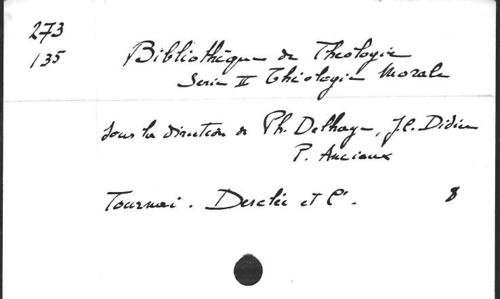 273
135
Bibliothèque de Theologie
Serie II Théologie Morale
sous la direction de Ph. Delhaye, J.C. Didier
P. Anciaux
Tournai. Desclée et Cie.
8